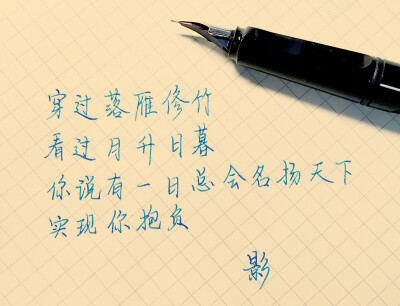 穿过落雁修竹
看过月升日暮
你说有一日总会名扬天下
实现你抱负
影